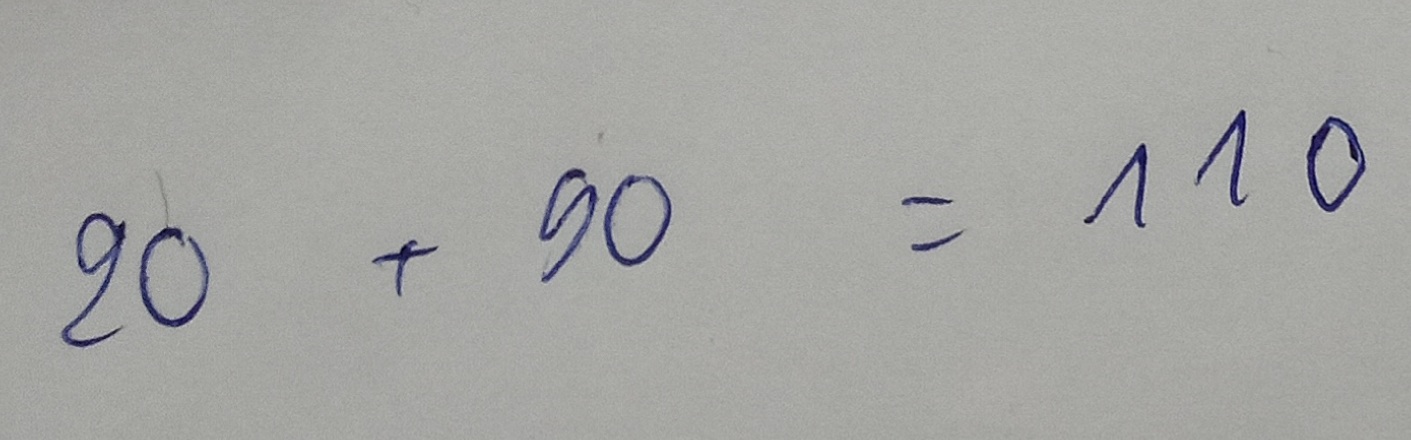 20 + 90 = 110